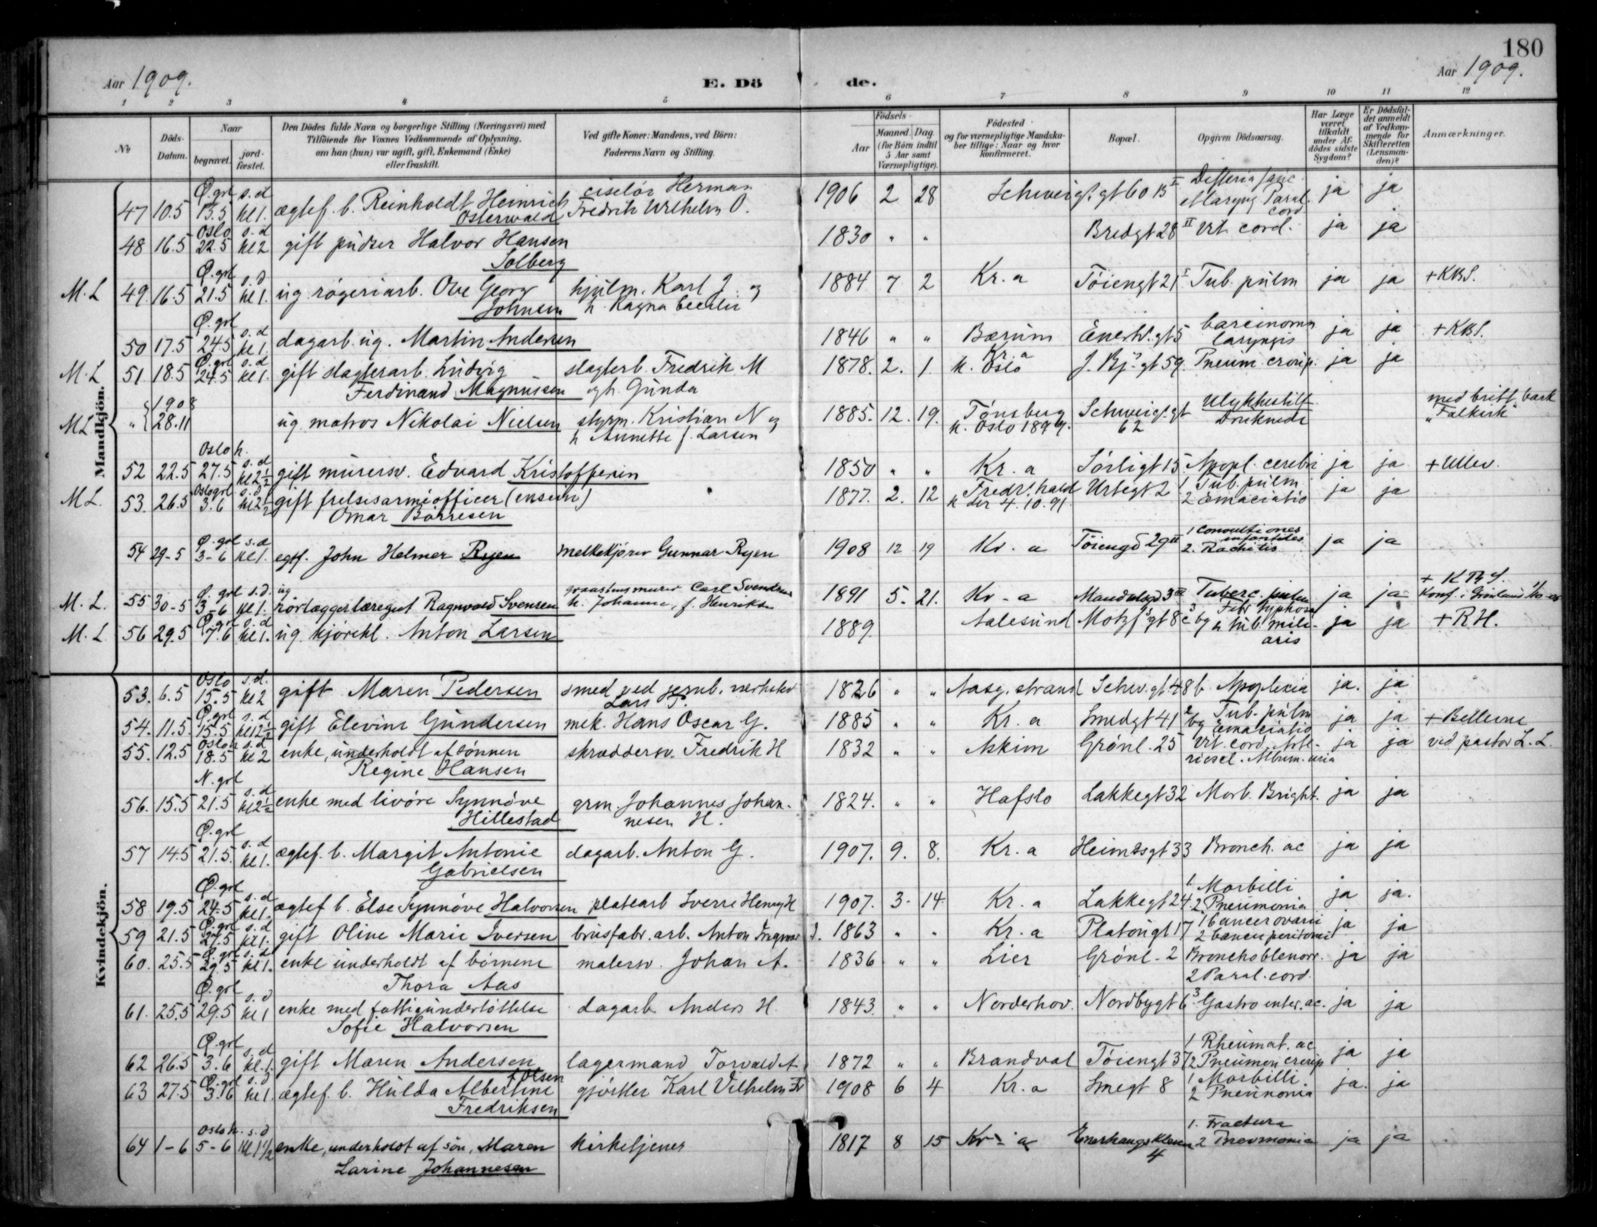 180
Aar 1909.
E. Döde.
Aar 1909.
1 2 3 4 5 6 7 8 9 10 11 12
No
Döds-Datum.
Naar
begravet.
jord-fæstet.
Den Dödes fulde Navn og borgerlige Stilling (Næringsvei) med
Tilföiende for Voxnes Vedkommende af Oplysning,
om han (hun) var ugift, gift, Enkemand (Enke)
eller fraskilt.
Ved gifte Koner: Mandens, ved Börn:
Faderens Navn og Stilling.
Födsels-
Aar
Maaned. Dag.
(for Börn indtil
5 Aar samt
Værnepligtige).
Födested
og for værnepligtige Mandska-
ber tillige: Naar og hvor
konfirmeret.
Bopæl.
Opgiven Dödsaarsag.
Har Læge
været
tilkaldt
under Af-
dödes sidste
Sygdom?
Er Dödsfal-
det anmeldt
af Vedkom-
mende for
Skifteretten
(Lensman-
den)?
Anmærkninger.
Mandkjön.
47 10.5 Ø.grl 15.5 s.d kl 1. ægtef. b. Reinholdt Heinrich Osterwald ciselör Herman Fredrik Wilhelm O. 1906 2 28 Schweigs.gt 60 B I Paral. cord ja ja
48 16.5 Oslo 22.5 s.d kl 2 gift pudser Halvor Hansen Solberg 1830 " " Bredgt 28 II Vit. cord. ja ja
M.L 49. 16.5 Ø.grl 21.5 s.d kl 1. ug. røgeriarb. Ove Georg Johnsen hjulm. Karl J. og h. Ragna 1884 7 2 Kr.a Töiengt 21 I Tub. pulm ja ja + KBS.
50 17.5 Ø.grl 24.5 s.d kl 1 dagarb. ug. Martin Andersen 1846 " " Bærum Enerh.gt 5 Carcinoma laryngis ja ja + KBS.
M.L 51. 18.5 Ø.grl 24.5 s.d kl 1. gift slagterarb. Ludvig Ferdinand Magnussen slagterb. Fredrik M og h. Gunda 1878. 2. 1. Kr a k. Oslo J. Bj. gt 59. Pneum. croup. ja ja
ML " 1908 28.11 ug. matros Nikolai Nielsen styrm. Kristian N og h. Annette f. Larsen 1885. 12. 19. Tønsberg k. Oslo 1899. Schweig.gt 62 Ulykkestilf. Druknede med britt. bark "Falkirk"
52 22.5 Oslo k. 27.5 s.d kl 2½ gift murersv. Edvard Kristoffersen 1850 " " Kr.a Sörligt 15 Apopl. cerebri ja ja + Ullev.
M.L. 53. 26.5 Oslo grl 3.6 s.d kl 2½ gift frelsesarmeofficer Omar Börresen 1877. 2. 12 Fredr.hald k. der 4.10.91 Urtegt 2 1 Tub. pulm 2 Emaciatio ja ja
54 29-5 Ø.grl 3-6 s.d kl 1. egf. John Helmer Ryen melkekjører Gunnar Ryen 1908 12 19 Kr.a Töiengd 29 II 1 Convultiones infantiles 2. Rachitis ja ja
M.L. 55 30-5 Ø.grl 3-6 s.d. kl 1. ug rörlæggerlæregut Ragnvald Svensen Carl Svendsen h. Johanne, f. Henriksen 1891 5. 21. Kr-a Mandalsgd 3 III Tuberc. pulm ja ja + KBS.
M.L. 56 29.5 Ø.grl 7.6 s.d kl 1. ug. kjörekl. Anton Larsen 1889. Aalesund Motzf. gt 8c Febr. typhoid og tub. miliaris ja ja + RH.
Kvindekjön.
53. 6.5 Oslo 15.5 s.d. kl 2 gift Maren Pedersen smed ved jernb. verksted Lars P. 1826 " " Aasg.strand Schw.gt 48 b. Apoplexia ja. ja
54. 11.5 Ø.grl 15.5 s.d gift Elevine Gundersen mek. Hans Oscar G. 1885 " " Kr.a Smedgt 41 Tub. pulm og Emaciatio ja ja + Bellevue
55. 12.5 Oslo 18.5 s.d kl 2 enke, underholdt af sönnen Regine Hansen skræddersv. Fredrik H 1832 " " Askim Grönl. 25 Vit. cord. Album.uria ja ja ved pastor L. L.
56. 15.5 N.grl 21.5 s.d kl 2½ enke med livöre Synnöve Hillestad grm. Johannes Johannesen H. 1824. " " Hafslo Lakkegt 32 Morb. Bright. ja ja
57 14.5 Ø.grl 21.5 s.d kl 1. ægtef. b. Margit Antonie Gabrielsen dagarb. Anton G. 1907. 9. 8. Kr.a Heimdsgt 33 Bronch. ac ja ja
58 19.5 Ø.grl 24.5 s.d kl 1. ægtef b. Else Synnöve Halvorsen platearb Sverre Henry H 1907. 3. 14 Kr.a Lakkegt 24 1. Morbilli 2. Pneumonia ja ja.
59 21.5 Ø.grl 27.5 s.d kl 1. gift Oline Marie Iversen brusfabr. arb. Anton Ingvar I. 1863 " " Kr.a Platöugt 17 1 Cancer ovarii 2 Cancer peritonei ja ja
60. 25.5 Ø.grl 29.5 s.d kl 1. enke underholdt af börnene Thora Aas malersv. Johan A. 1836 " " Lier Grönl. 2 Bronchoblenore. 2 Paral. cord. ja ja
61. 25.5 Ø.grl 29.5 s.d kl 1 enke med fattigunderstöttelse Sofie Halvorsen dagarb Anders H. 1843. " " Norderhov. Nordbygt 6 3 Gastro enter. ac. ja ja
62 26.5 Ø.grl 3.6 s.d kl 1. gift Maren Andersen lagermand Torvald A. 1872 " " Brandval Töiengt 37 1 Rheumat. ac 2 Pneumon. croup ja ja
63 27.5 Ø.grl 3.6 s.d kl 1 ægtef b. Hulda Albertine Olsen Fredriksen gjörtler Karl Vilhelm Fr 1908 6 4 Kr.a Smegt 8 1 Morbilli. 2 Pneumonia ja. ja
64 1-6 Oslo k. 5-6 s.d enke, underholdt af sön, Maren Larine Johannesen kirketjener 1817 8 15 Kr-a Enerhaugsklevn 4 1. Fractura 2 Pneumonia ja ja